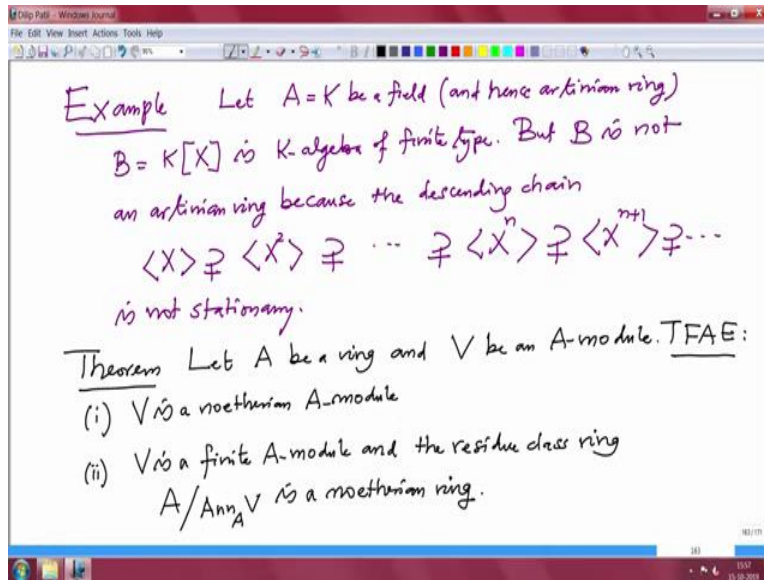 Dilip Patil - Windows Journal
File Edit View Insert Actions Tools Help
Example Let A = K be a field (and hence artinian ring)
B = K[X] is K-algebra of finite type. But B is not
an artinian ring because the descending chain
⟨X⟩ ⊋ ⟨X²⟩ ⊋ ··· ⊋ ⟨Xⁿ⟩ ⊋ ⟨Xⁿ⁺¹⟩ ⊋ ···
is not stationary.
Theorem Let A be a ring and V be an A-module. TFAE:
(i) V is a noetherian A-module
(ii) V is a finite A-module and the residue class ring
A/Ann_A V is a noetherian ring.
163/171
163
15:57
15-10-2019